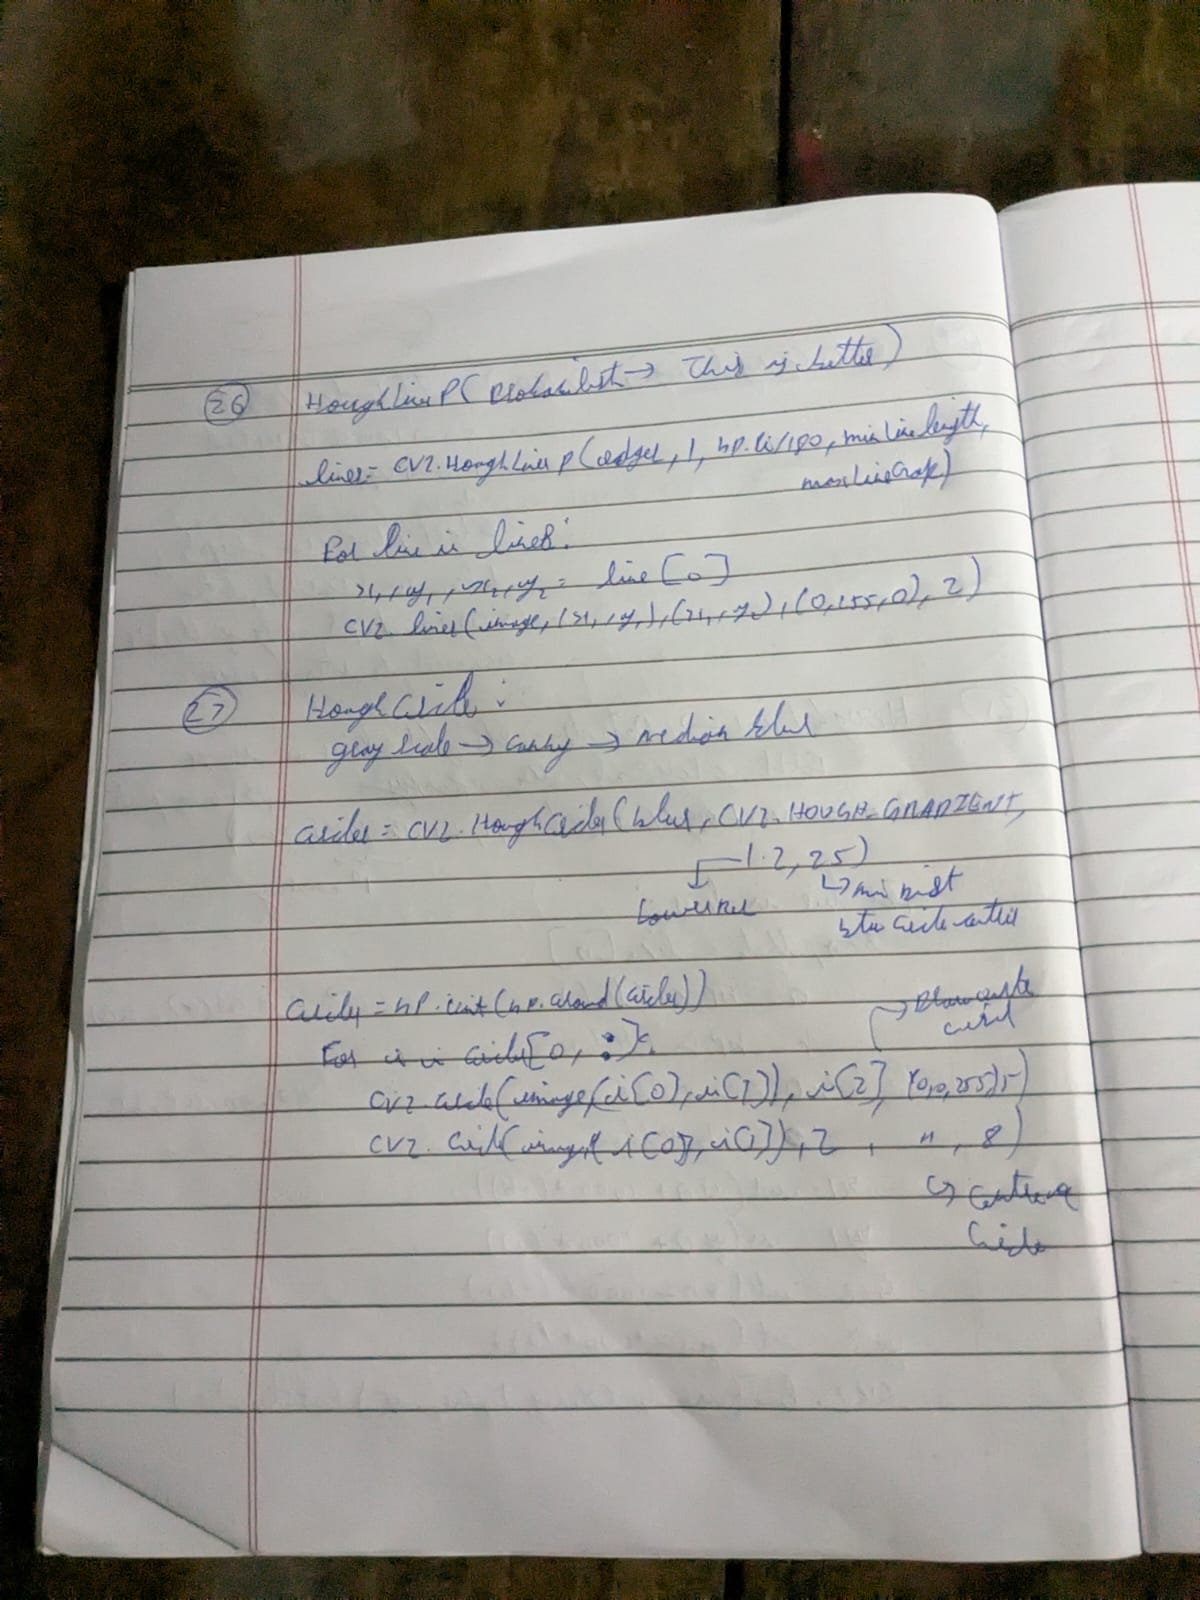 26 HoughLineP( Probabilist → This is better)
lines = cv2.HoughLinesP(edges, 1, np.pi/180, minLinelength,
maxLineGap)
For line in lines:
x1, y1, x2, y2 = line[0]
cv2.lines(image, (x1, y1), (x1, y2), (0,255,0), 2)
27 HoughCircle:
gray scale → canny → median blur
circles = cv2.HoughCircles(blur, cv2.HOUGH_GRADIENT,
1.2, 25)
↳ min dist
btw circle center
circles = np.uint(np.around(circles))
→ Draw outer
circle
For i in circles[0, :]:
cv2.circle(image, (i[0], i[1]), i[2], (0,0,255), 5)
cv2.circle(image, (i[0], i[1]), 2, ", 8)
↳ center
Circle